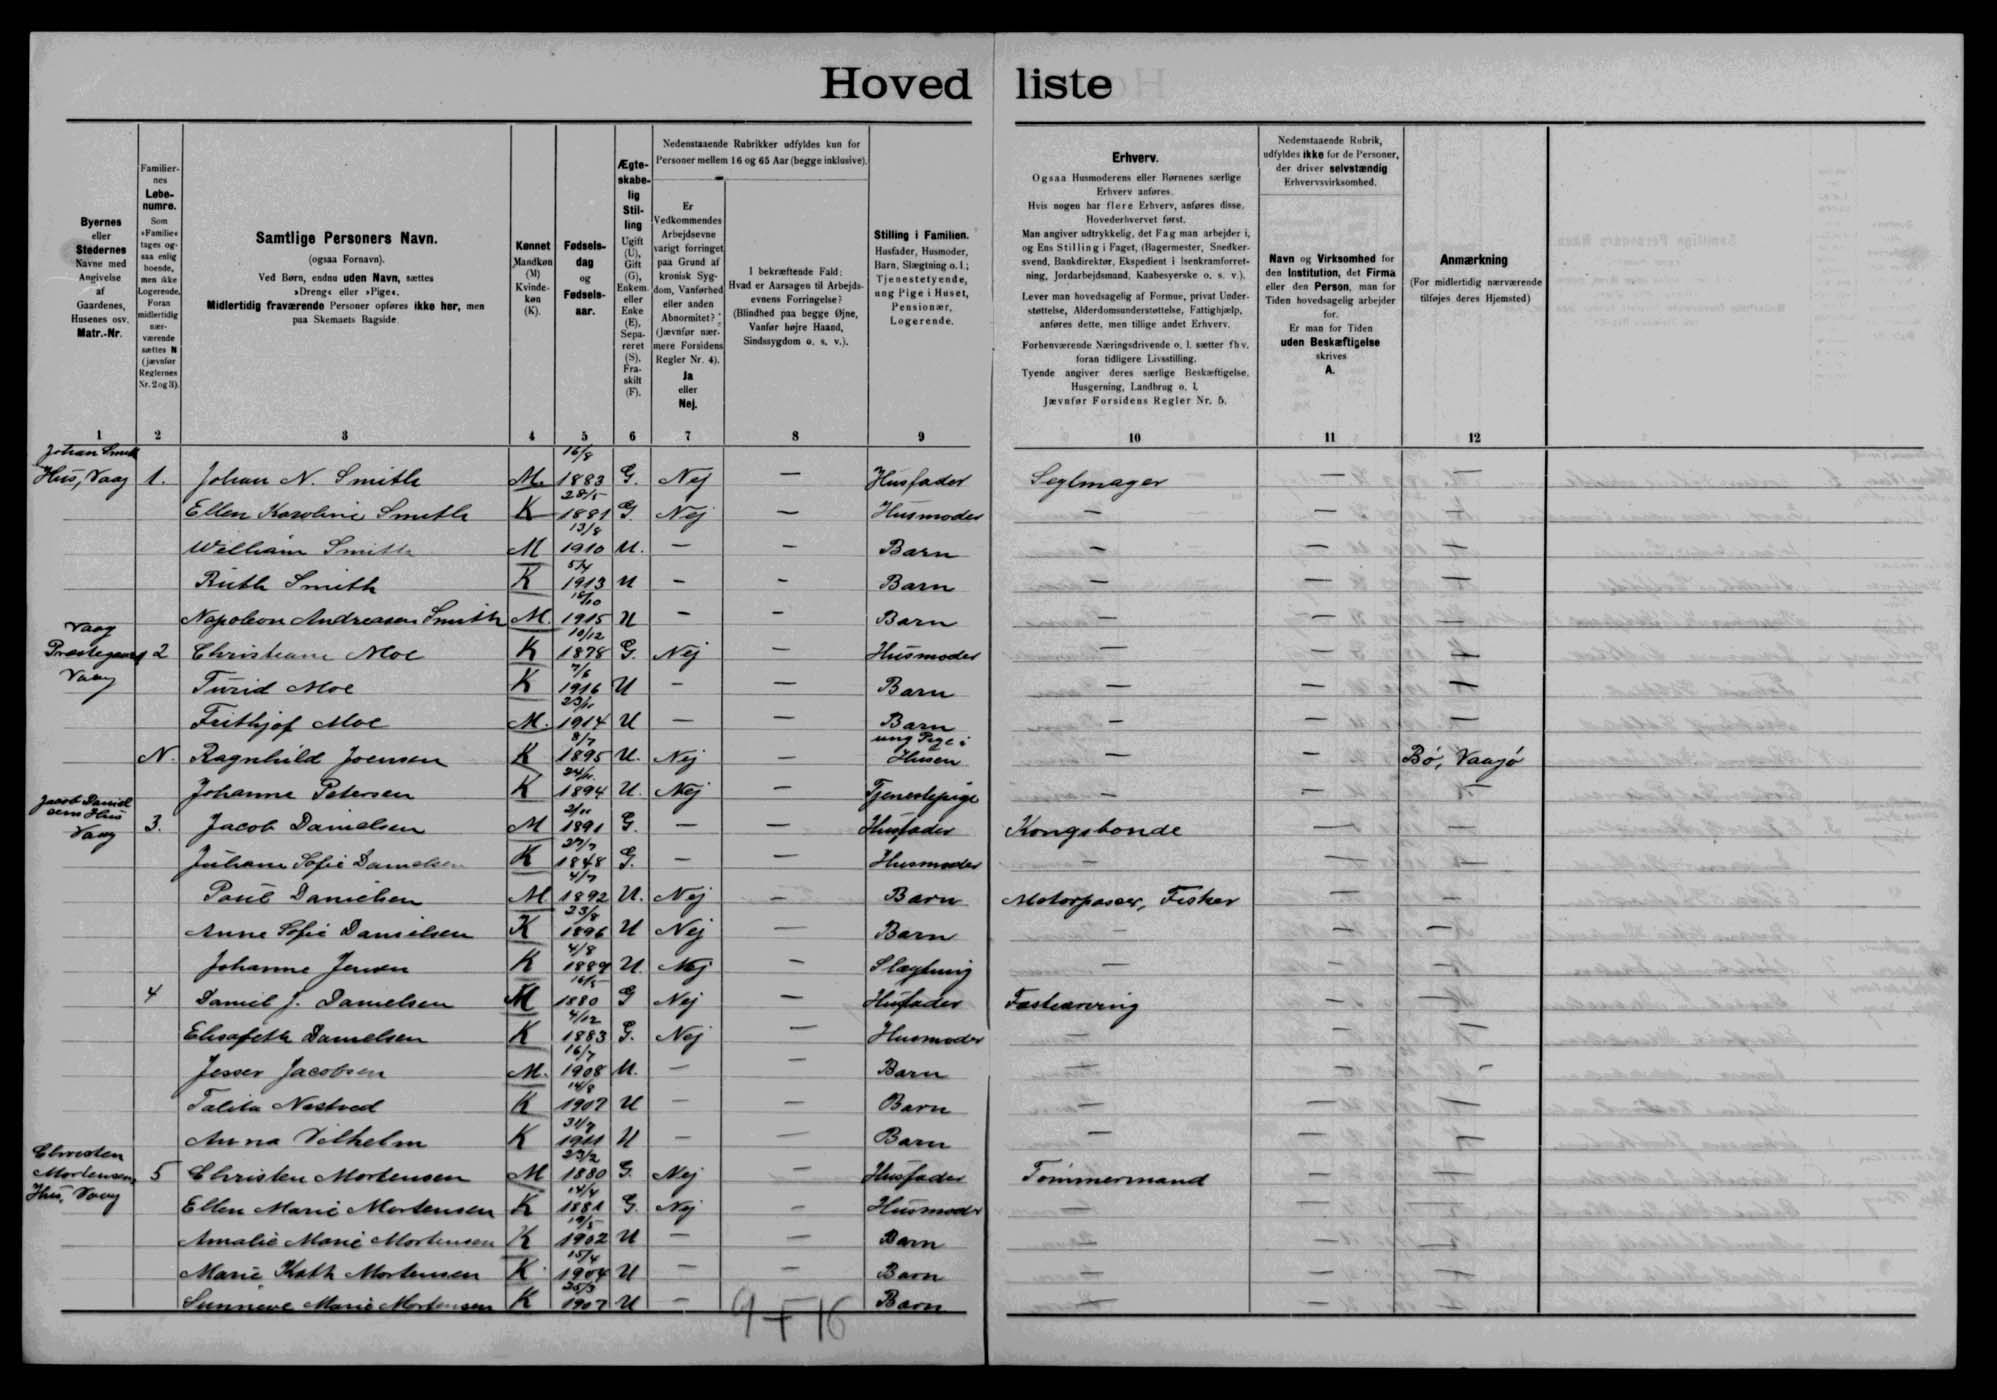 Hoved liste
Byernes
eller
Stedernes
Navne med
Angivelse
af
Gaardenes,
Husenes osv.
Matr.-Nr.
Familier-
nes
Løbe-
numre.
Som
»Familie«
tages og-
saa enlig
boende,
men ikke
Logerende.
Foran
midlertidig
nær-
værende
sættes N
(jævnfør
Reglernes
Nr. 2 og 3).
Samtlige Personers Navn.
(ogsaa Fornavn).
Ved Børn, endnu uden Navn, sættes
»Dreng« eller »Pige«.
Midlertidig fraværende Personer opføres ikke her, men
paa Skemaets Bagside.
Kønnet
Mandkøn
(M)
Kvinde-
køn
(K).
Fødsels-
dag
og
Fødsels-
aar.
Ægte-
skabe-
lig
Stil-
ling
Ugift
(U),
Gift
(G),
Enkem.
eller
Enke
(E),
Sepa-
reret
(S).
Fra-
skilt
(F).
Nedenstaaende Rubrikker udfyldes kun for
Personer mellem 16 og 65 Aar (begge inklusive).
Er
Vedkommendes
Arbejdsevne
varigt forringet
paa Grund af
kronisk Syg-
dom, Vanførhed
eller anden
Abnormitet?
(Jævnfør nær-
mere Forsidens
Regler Nr. 4).
Ja
eller
Nej.
I bekræftende Fald:
Hvad er Aarsagen til Arbejds-
evnens Forringelse?
(Blindhed paa begge Øjne,
Vanfør højre Haand,
Sindssygdom o. s. v.).
Stilling i Familien.
Husfader, Husmoder,
Barn, Slægtning o. l.;
Tjenestetyende,
ung Pige i Huset,
Pensionær,
Logerende.
Erhverv.
Ogsaa Husmoderens eller Børnenes særlige
Erhverv anføres.
Hvis nogen har flere Erhverv, anføres disse,
Hovederhvervet først.
Man angiver udtrykkelig, det Fag man arbejder i,
og Ens Stilling i Faget, (Bagermester, Snedker-
svend, Bankdirektør, Ekspedient i Isenkramforret-
ning, Jordarbejdsmand, Kaabesyerske o. s. v.).
Lever man hovedsagelig af Formue, privat Under-
støttelse, Alderdomsunderstøttelse, Fattighjælp,
anføres dette, men tillige andet Erhverv.
Forhenværende Næringsdrivende o. l. sætter fhv.
foran tidligere Livsstilling.
Tyende angiver deres særlige Beskæftigelse,
Husgerning, Landbrug o. l.
Jævnfør Forsidens Regler Nr. 5.
Nedenstaaende Rubrik,
udfyldes ikke for de Personer,
der driver selvstændig
Erhvervsvirksomhed.
Navn og Virksomhed for
den Institution, det Firma
eller den Person, man for
Tiden hovedsagelig arbejder
for.
Er man for Tiden
uden Beskæftigelse
skrives
A.
Anmærkning
(For midlertidig nærværende
tilføjes deres Hjemsted)
1 2 3 4 5 6 7 8 9 10 11 12
Johan Smith
Hus, Vaag 1. Johan N. Smith M. 16/8 1883 G. Nej — Husfader Seglmager — —
Ellen Karoline Smith K 28/5 1881 G. Nej — Husmoder — — —
William Smith M 13/8 1910 U. — — Barn — — —
Ruth Smith K 1913 U — — Barn — — —
Napoleon Andreasen Smith M. 1915 U — — Barn — — —
Vaag
Præstegaard 2 Christiane Moe K 10/12 1878 G. Nej — Husmoder — — —
Vaag
Turid Moe K 7/6 1916 U — — Barn — — —
Frithjof Moe M. 1914 U — — Barn — — —
N. Ragnhild Joensen K 8/7 1895 U. Nej — ung Pige i Husen — — Bø, Vaagø
Johanne Petersen K 1894 U. Nej — Tjenestepige — — —
Jacob Daniel
sens Hus
Vaag 3. Jacob Danielsen M 1891 G. — — Husfader Kongsbonde — —
Juliane Sofie Danielsen K 1848 G. — — Husmoder — — —
Poul Danielsen M 4/7 1892 U. Nej — Barn Motorpasser, Fisker — —
Anne Sofie Danielsen K 23/8 1896 U Nej — Barn — — —
Johanne Jensen K 4/8 1889 U. Nej — Slægtning — — —
4 Daniel J. Danielsen M 16/5 1880 G Nej — Husfader —
Elisabeth Danielsen K 4/12 1883 G. Nej — Husmoder — — —
Jesser Jacobsen M. 16/7 1908 U. — — Barn — — —
Talita K 14/8 1907 U — — Barn — — —
Anna Vilhelm K 31/7 1911 U — — Barn — — —
Christen
Mortensens
Hus, Vaag 5 Christen Mortensen M 23/2 1880 G. Nej — Husfader Tømmermand — —
Ellen Marie Mortensen K 14/4 1881 G. Nej — Husmoder — — —
Amalie Marie Mortensen K 19/5 1902 U — — Barn — — —
Marie Kath Mortensen K 15/4 1904 U — — Barn — — —
Sunneve Marie Mortensen K 25/3 1907 U — — Barn — — —
9 + 16